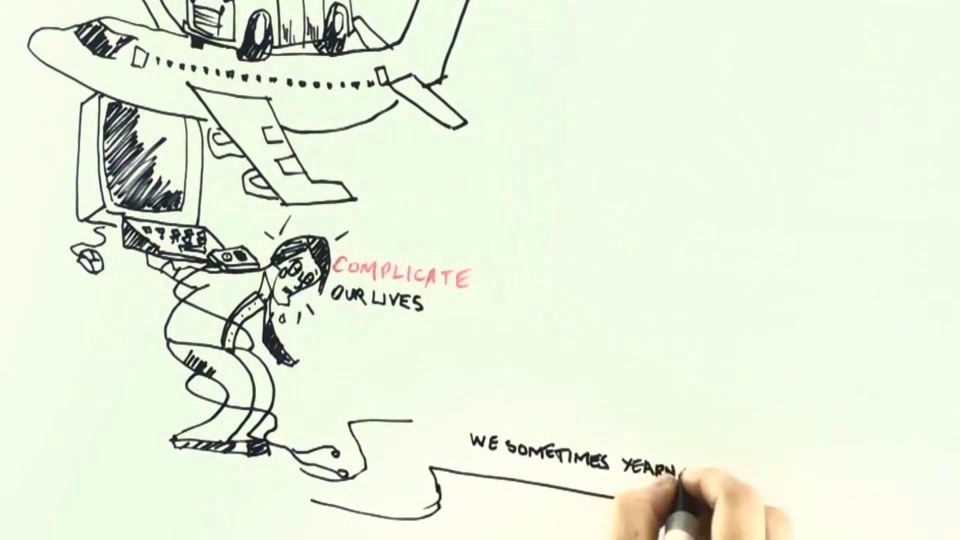 COMPLICATE
OUR LIVES
WE SOMETIMES YEARN